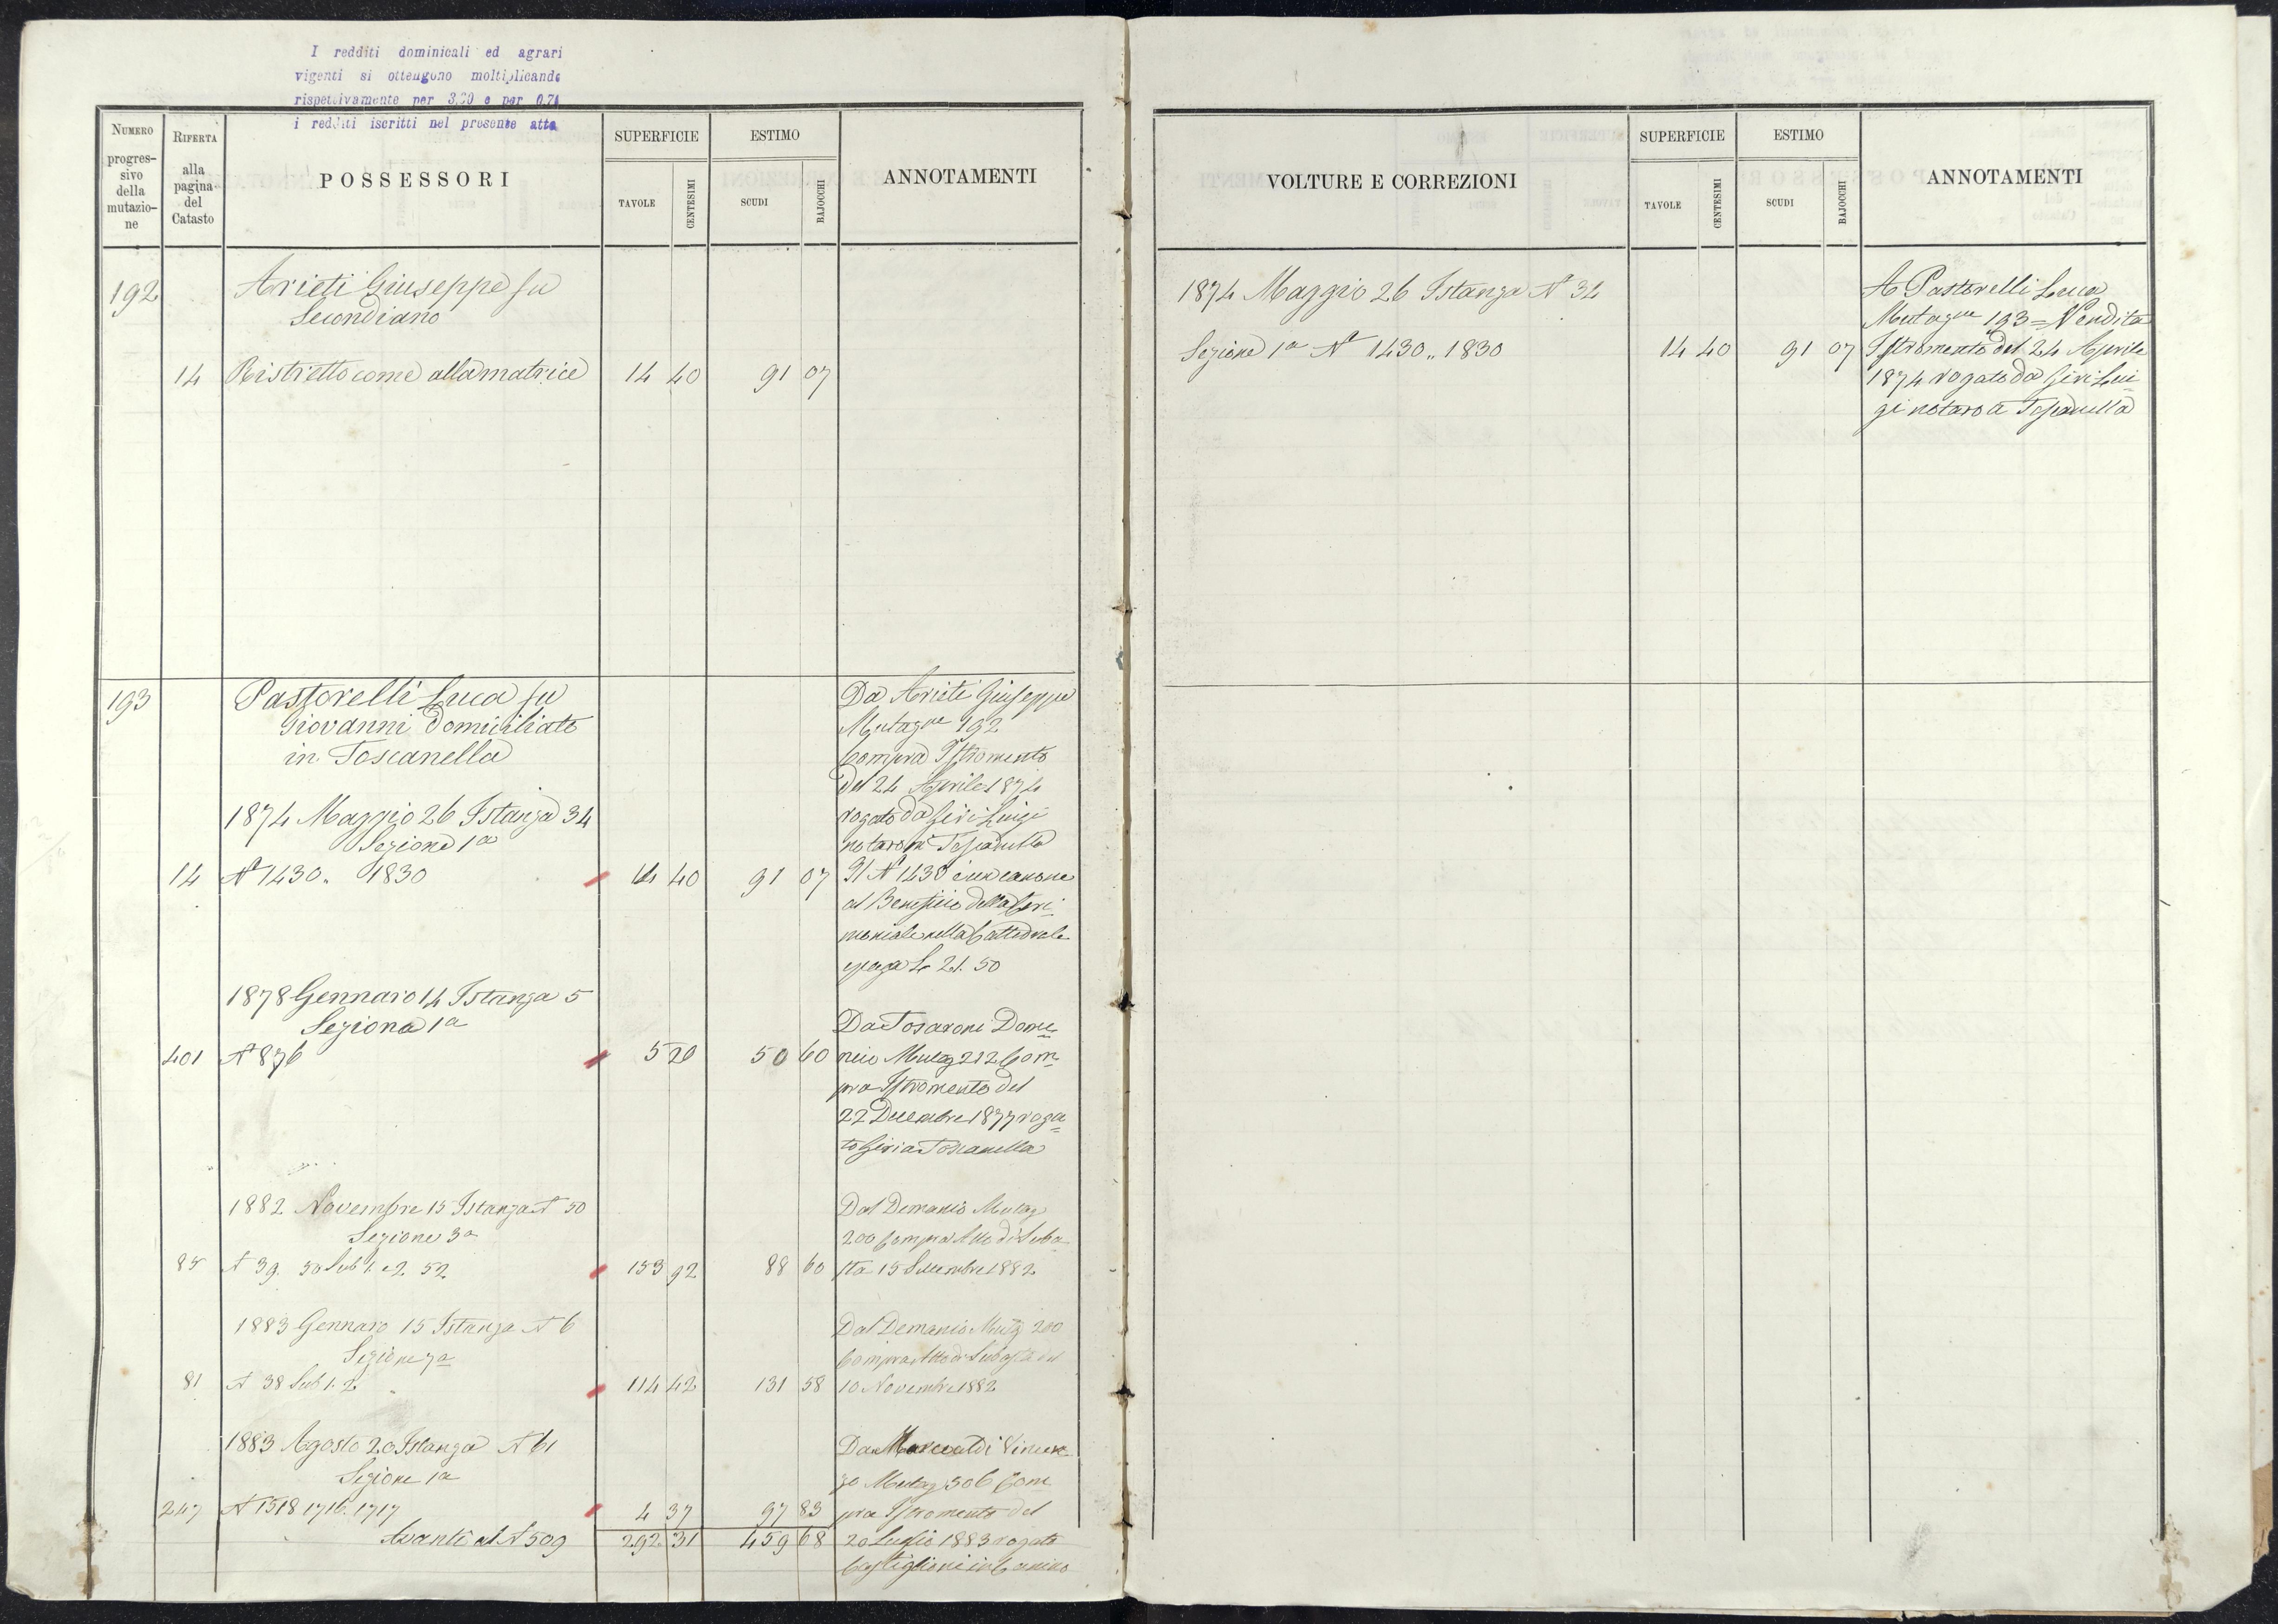 I redditi dominicali ed agrari
vigenti si ottengono moltiplicando
rispettivamente per 3,60 e per 0,74
i redditi iscritti nel presente atto
NUMERO progressivo della mutazione
RIFERTA alla pagina del Catasto
POSSESSORI
SUPERFICIE
TAVOLE
CENTESIMI
ESTIMO
SCUDI
BAJOCCHI
ANNOTAMENTI
192
Arieti Giuseppe fu
Secondiano
14 Ristretto come alla matrice 14 40 91 07
193
Pastorelli Luca fu
Giovanni domiciliato
in Toscanella
1874 Maggio 26 Istanza 34
Sezione 1a
14 N° 1430 „ 1830 14 40 91 07
Da Arieti Giuseppe
Mutazne 192
Compra Istromento
del 24 Aprile 1874
rogato da Giri Luigi
notaro in Toscanella
Il N° 1430 è un canone
al Beneficio della Ceri-
moniale nella Cattedrale
e paga L. 21.50
1878 Gennaro 14 Istanza 5
Sezione 1a
401 N° 876 5 20 50 60
Da Tosaroni Dome=
nico Mutaz 212 Com=
pra Istromento del
22 Decembre 1877 roga=
to Giri a Toscanella
1882 Novembre 15 Istanza N 50
Sezione 3a
85 N 39. 50 Sub 1. e 2 52 153 92 88 60
Dal Demanio Mutaz
200 Compra Atto di Suba
sta 15 Settembre 1882
1883 Gennaro 15 Istanza N 6
Sezione 7a
81 N 38 Sub 1. 2 114 42 131 58
Dal Demanio Mutaz 200
Compra Atto di Subasta del
10 Novembre 1882
1883 Agosto 20 Istanza N 61
Sezione 1a
247 N 1518 1716. 1717 4 37 97 83
Avanti al N 509 292 31 459 68
Da Marcoaldi Vincen
zo Mutaz 306 Com
pra Istromento del
20 Luglio 1883 rogato
Castiglioni in Canino
VOLTURE E CORREZIONI
SUPERFICIE
TAVOLE
CENTESIMI
ESTIMO
SCUDI
BAJOCCHI
ANNOTAMENTI
1874 Maggio 26 Istanza N° 34
Sezione 1a N° 1430 „ 1830 14 40 91 07
A Pastorelli Luca
Mutazne 193 = Vendita
Istromento del 24 Aprile
1874 rogato da Giri Lui=
gi notaro a Toscanella